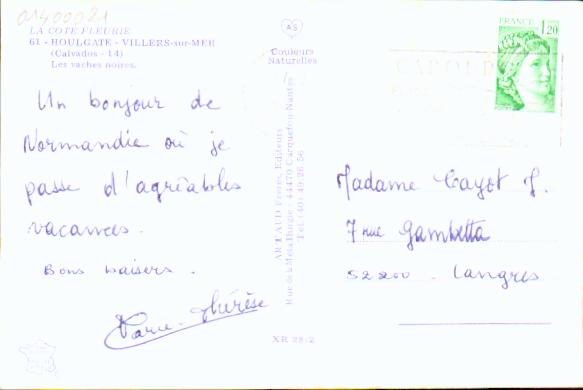 01400081
LA COTE FLEURIE
61 - HOULGATE - VILLERS-sur-MER
(Calvados - 14)
Les vaches noires.
AS
Couleurs
Naturelles
FRANCE
1,20
Un bonjour de
Normandie où je
passe d'agréables
vacances.
Bons baisers.
Marie-Thérèse
ARTAUD Frères, Editeurs
Rue de la Métallurgie - 44470 Carquefou-Nantes
Tél. (40) 49.26.56
XR 28/2
Madame Cayot J.
7 rue Gambetta
52200 - Langres